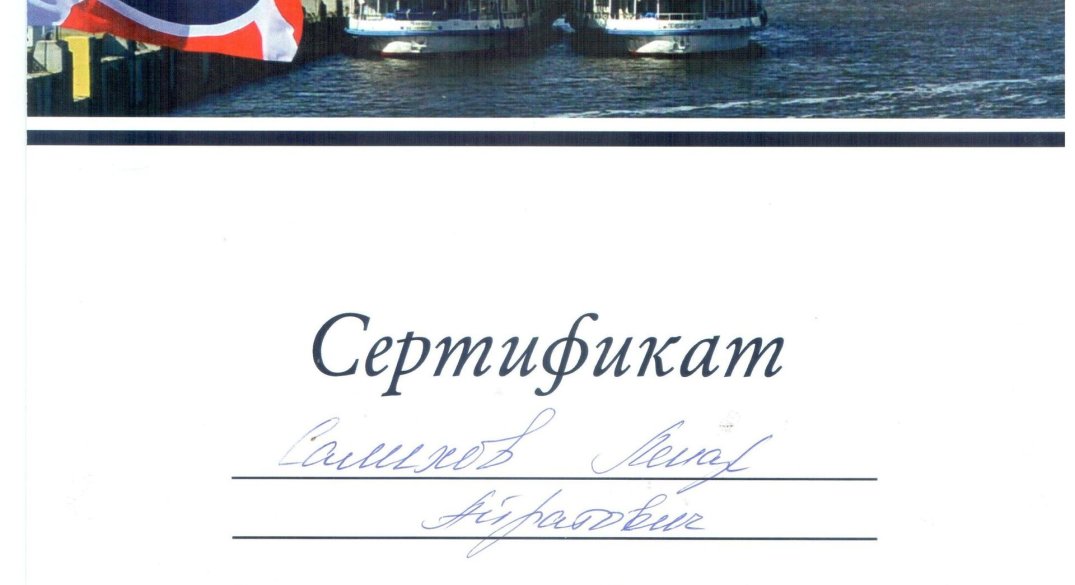 Сертификат
Салихов Ленар
Айратович